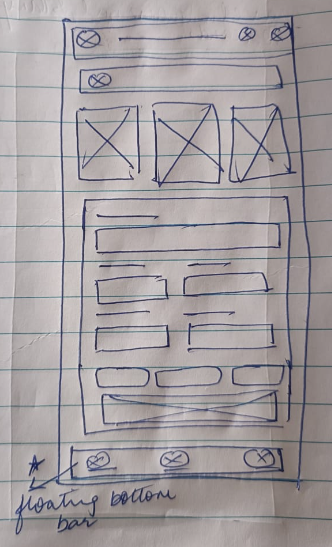 floating bottom
bar